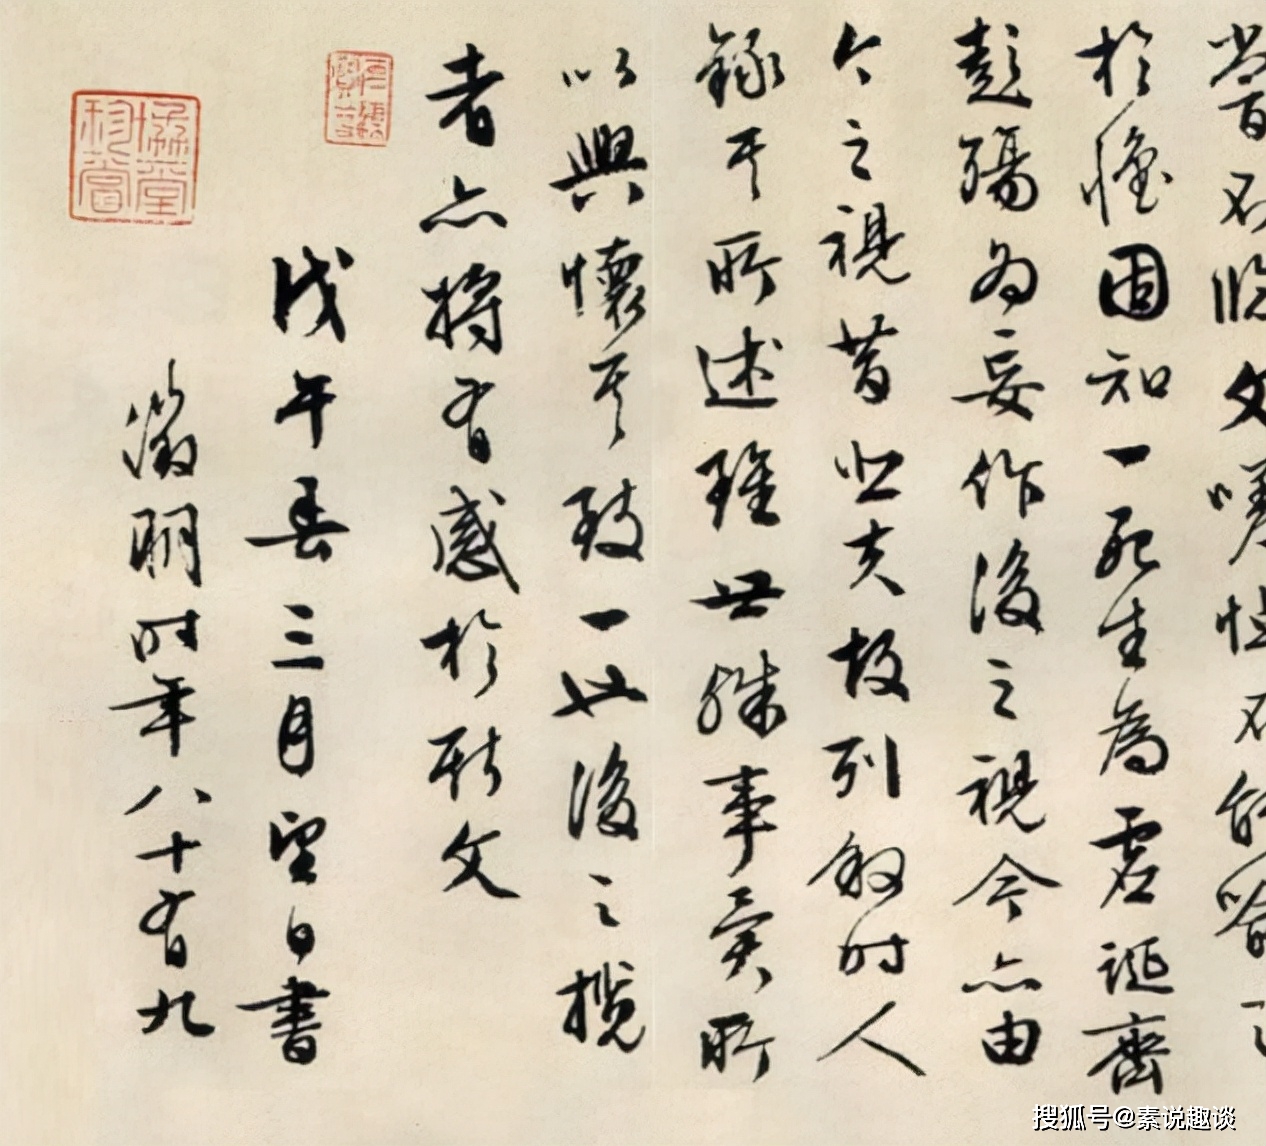 嘗不臨文嗟悼不能喻之
於懷固知一死生為虛誕齊
彭殤為妄作後之視今亦由
今之視昔悲夫故列敘時人
錄其所述雖世殊事異所
以興懷其致一也後之攬
者亦將有感於斯文
戊午春三月望日書
徵明時年八十有九
搜狐号@素说趣谈